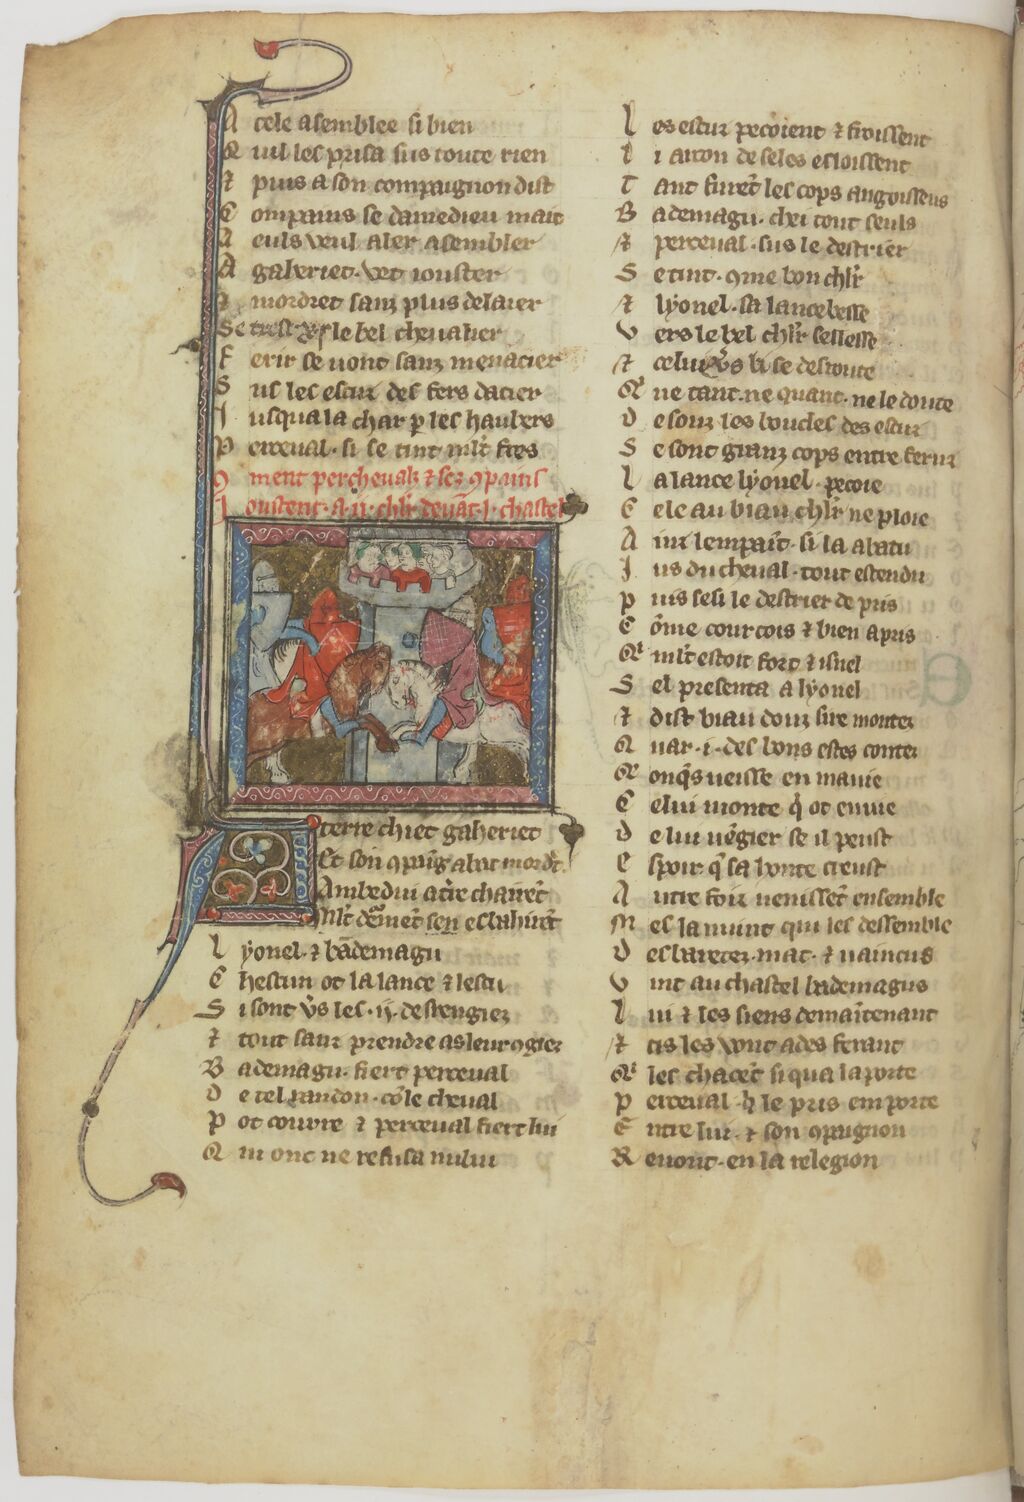 A cele asemblee si bien
Quil les prisa sus toute rien
Et puis a son compaignon dist
Compains se damedieu mait
A euls veul aler asembler
A gaheriet. vet iouster
Et mordret sanz plus delaier
le bel chevalier
Ferir se vont sanz menacier
Sus les escuz des fers dacier
Jusqua la char p les haubers
Perceval. si se tint mlt fres
9ment percheualz & sez 9pains
Joustent. a .ij. chlr deuant .j. chastel
A terre chiet gaheriet
Et son 9paing abat mordret
Ambedui a tre chairent
Mlt dement sen esbahirent
Lyonel. & bademagu
Chescun ot la lance & lescu
Si sont vs les .ij. destrengiez
Et tout sanz prendre as leur 9giez
Bademagu. fiert perceual
De tel randon. co le cheual
Pot courre & perceual fiert lui
Qui onc ne refusa nului
Les escuz pecoient & froissent
Li arcon de seles esloissent
Tant furent les cops angoisseus
Bademagu. chei tout seuls
Et perceual. sus le destrier
Se tint. 9me bon chlr
Et lyonel. sa lance besse
Vers le bel chlr sellesse
Et celui vs li se destoute
Que tant. ne quant. ne le doute
Desouz les boucles des escuz
Se sont granz cops entre feruz
La lance lyonel. pecoie
Cele au biau chlr ne ploie
Ainz lempaint. si la abatu
Jus du cheual. tout estendu
Puis sesi le destrier de pris
Come courtois & bien apris
Qui mlt estoit fort & isnel
Sel presenta a lyonel
Et dist biau douz sire montez
Quar .i. des bons estes contez
Que onqs veisse en ma vie
Celui monte q ot enuie
De lui vengier se il peust
Espoir. q sa honte creust
Autre foiz venissent ensemble
Mes la nuit qui les dessemble
Desbaretez. mat. & vaincus
Vint au chastel bademagus
Lui & les siens demaintenant
Et cis les vont ades ferant
Qui les chacent si qua la porte
Perceual. h le pris emporte
Entre lui. & son 9paignon
Reuont. en la relegion